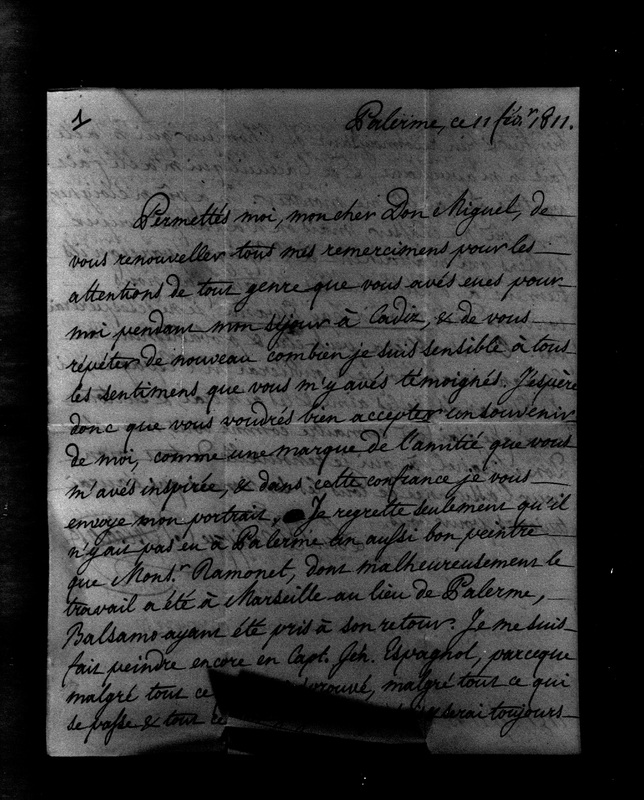 1
Palerme, ce 11 fév.r 1811.
Permettés moi, mon cher Don Miguel, de
vous renouveller tous mes remercimens pour les
attentions de tout genre que vous avés eues pour
moi pendant mon séjour à Cadiz, & de vous
répéter de nouveau combien je suis sensible à tous
les sentimens que vous m'y avés témoignés. J'espère
donc que vous voudrés bien accepter un souvenir
de moi, comme une marque de l'amitié que vous
m'avés inspirée, & dans cette confiance je vous
envoye mon portrait. Je regrette seulement qu'il
n'y ait pas eu à Palerme un aussi bon peintre
que Mons.r Ramonet, dont malheureusement le
travail a été à Marseille au lieu de Palerme,
Balsamo ayant été pris à son retour. Je me suis
fait peindre encore en Capt. Gén. Espagnol, parceque
malgré tout ce prouvé, malgré tout ce qui
se passe & tout ce serai toujours